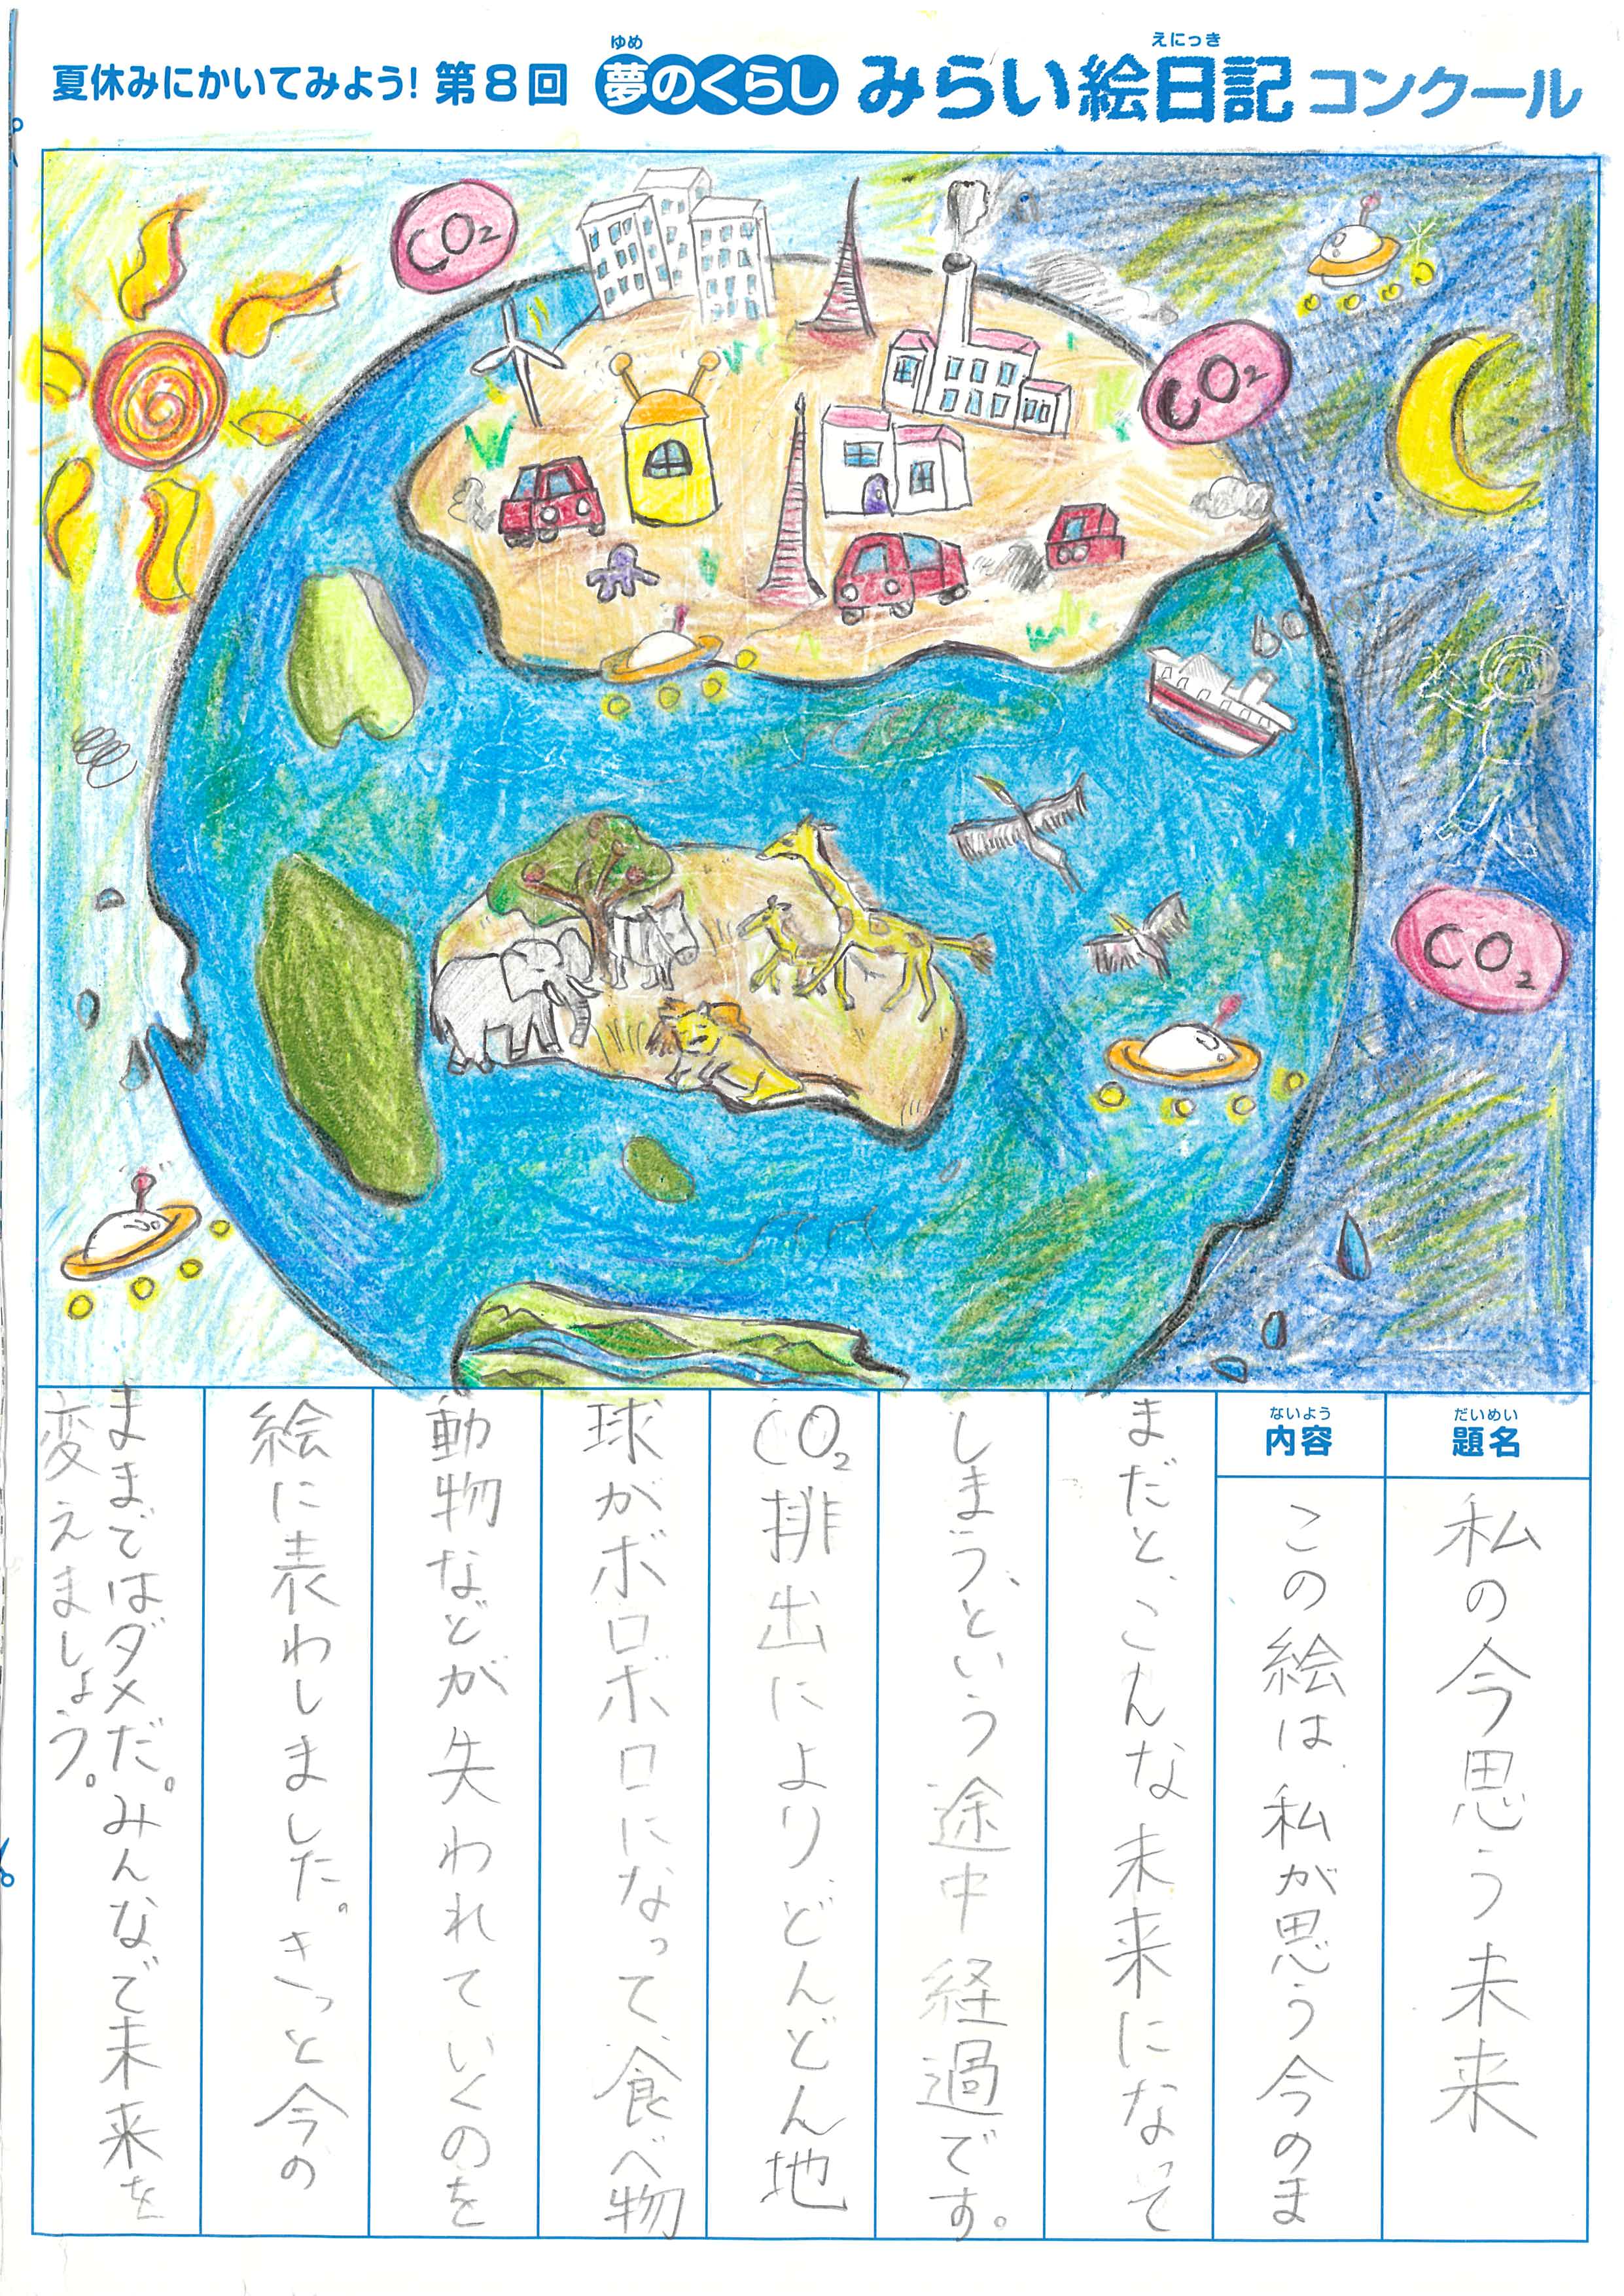 夏休みにかいてみよう! 第8回 夢のくらし みらい絵日記 コンクール
ゆめ
えにっき
CO2
CO2
CO2
だいめい
題名
私の今思う未来
ないよう
内容
この絵は、私が思う今のま
まだと、こんな未来になって
しまう、という途中経過です。
CO2排出により、どんどん地
球がボロボロになって、食べ物
動物などが失われていくのを
絵に表わしました。きっと今の
ままではダメだ。みんなで未来を
変えましょう。